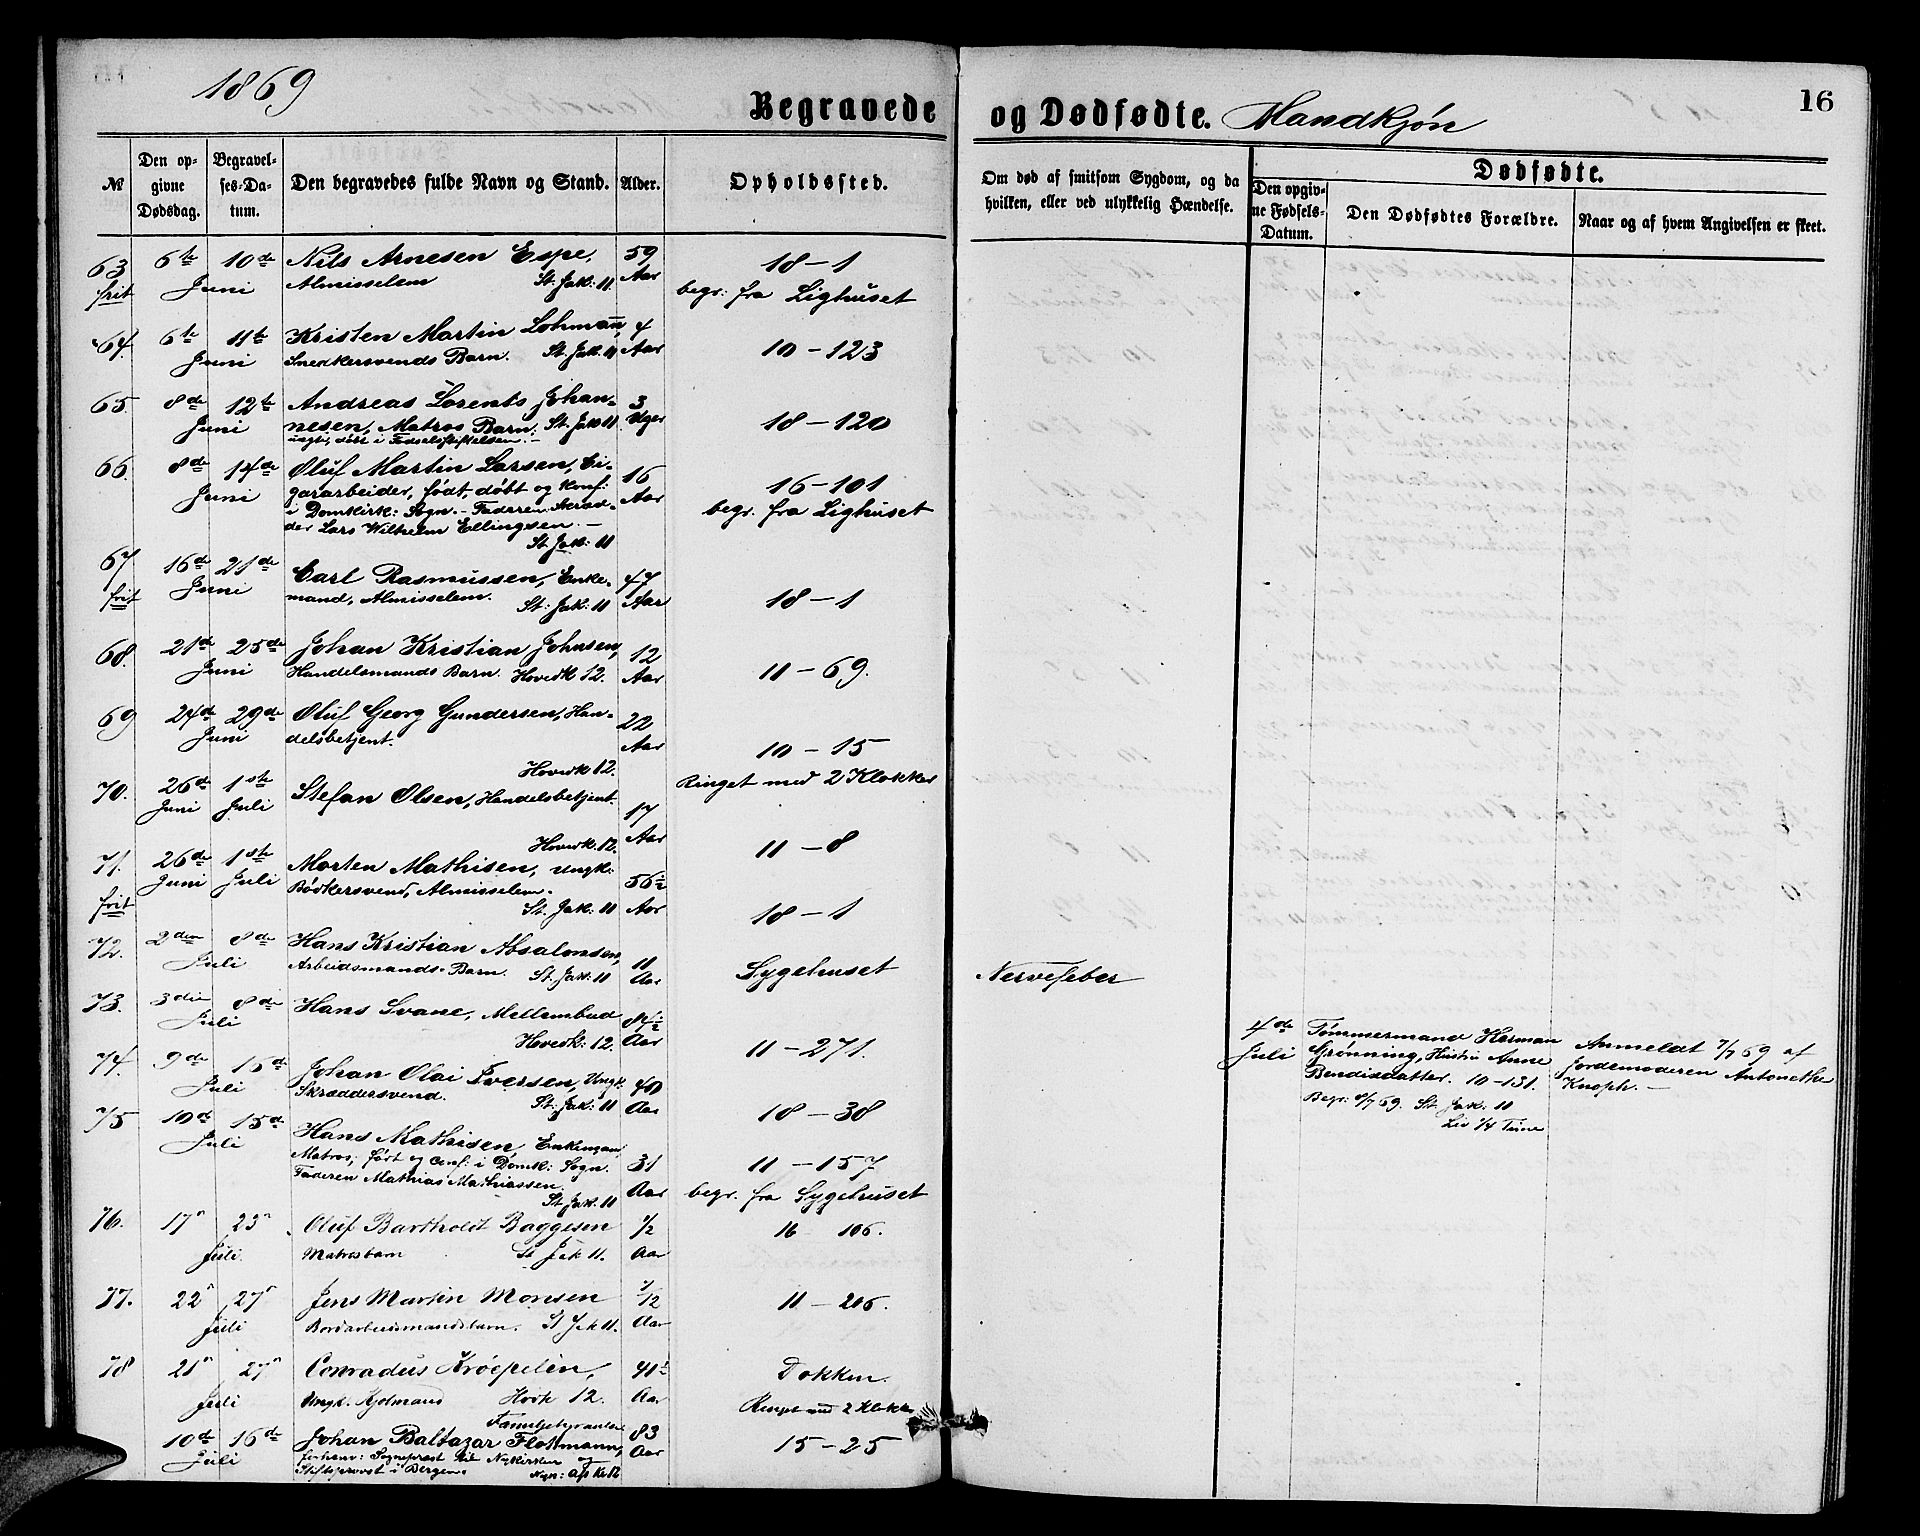 1869
Begravede og Dødfødte. Mandkjøn
16
№
Den opgivne Dødsdag.
Begravelses-Datum.
Den begravedes fulde Navn og Stand.
Alder.
Opholdssted.
Om død af smitsom Sygdom, og da hvilken, eller ved ulykkelig Hændelse.
Dødfødte.
Den opgivne Fødsels-Datum.
Den Dødfødtes Forældre.
Naar og af hvem Angivelsen er skeet.
63 6te 10de Nils Arnesen Espe, 59 18-1
frit Juni Almisselem St. Jak: 11 Aar begr: fra Lighuset
64 6te 11te Kristen Martin Lohmañ, 4
Juni Snedkersvends Barn. St. Jak. 11 Aar 10-123
65. 8de 12te Andreas Lorents Johan- 3
Juni nesen, Matros Barn: St. Jak 11 Uger 18-120
uægte, døbt i Fødselsstiftelsen.-
66. 8de 14de Oluf Martin Larsen, Ci- 16
Juni gararbeider, født, døbt og konf: Aar 16-101
i Domkirk: Sogn.- Faderen Skræd- begr. fra Lighuset
der Lars Wilhelm Ellingsen.-
St. Jak: 11
67 16de 21de Carl Rasmussen, Enke- 47
frit Juni mand, Almisselem. St: Jak: 11 Aar 18-1
68. 21de 25de Johan Kristian Johnsen, 12
Juni Handelsmands Barn. Hovedk 12. Aar 11-69.
69 24de 29de Oluf Georg Gundersen, Han- 22
Juni delsbetjent. Aar 10-15
Hovedk 12. Ringet med 2 Klokker
70. 26de 1ste Stefan Olsen, Handelsbetjent. 17
Juni Juli Aar
Hovedk. 12. 11-8
71. 26de 1ste Morten Mathisen, Ungk: 56½
Juni Juli Bødkersvend, Almisselem.
frit St. Jak: 11 Aar 18-1
72. 2den 8de Hans Kristian Absalonsen, 11
Juli Arbeidsmands Barn. St. Jak: 11 Aar Sygehuset Nervefeber
73. 3die 8de Hans Svane, Mellembud 84½
Juli Hovedk: 12. Aar 11-271.
74. 9de 16de Johan Olai Iversen, Ungk. 40
Juli Skræddersvend. St: Jak: 11 Aar 18-38
75 10de 15de Hans Mathisen, Enkemand,
Juli Matros, født og conf: i Domk: Sogn. 31 11-157
Faderen Mathias Mathiassen. Aar begr. fra Sygehuset
St. Jak 11
4de Juli
Tømmermand Herman
Grønning, Hustru Anne
Bendixdatter. 10-131.
Begr: 8/7 69. St. Jak: 11
Liv 1/4 Time
Anmeldt 7/7 69 af
Jordemoderen Antonethe
Knoph.-
76. 17n 23n Oluf Bartholdt Baggesen 1/2 16-106.
Juli Matrosbarn St Jak 11. Aar
77. 22n 27n Jens Martin Monsen 7/12 11-206.
Juli Bordarbeidsmandsbarn. St Jak 11. Aar
78 21n 27n Conradus Krøepelin, 41½ Dokken.
Juli Ungk. Kjølmand Hovk 12. Aar Ringet med 2 Klokker
Familjebegravelse
10de 16de Johan Baltazar Flottmann, 83 15-25
Juli forhenv: Sogneprest til Nykirken og Aar
Stiftsprovst i Bergen.